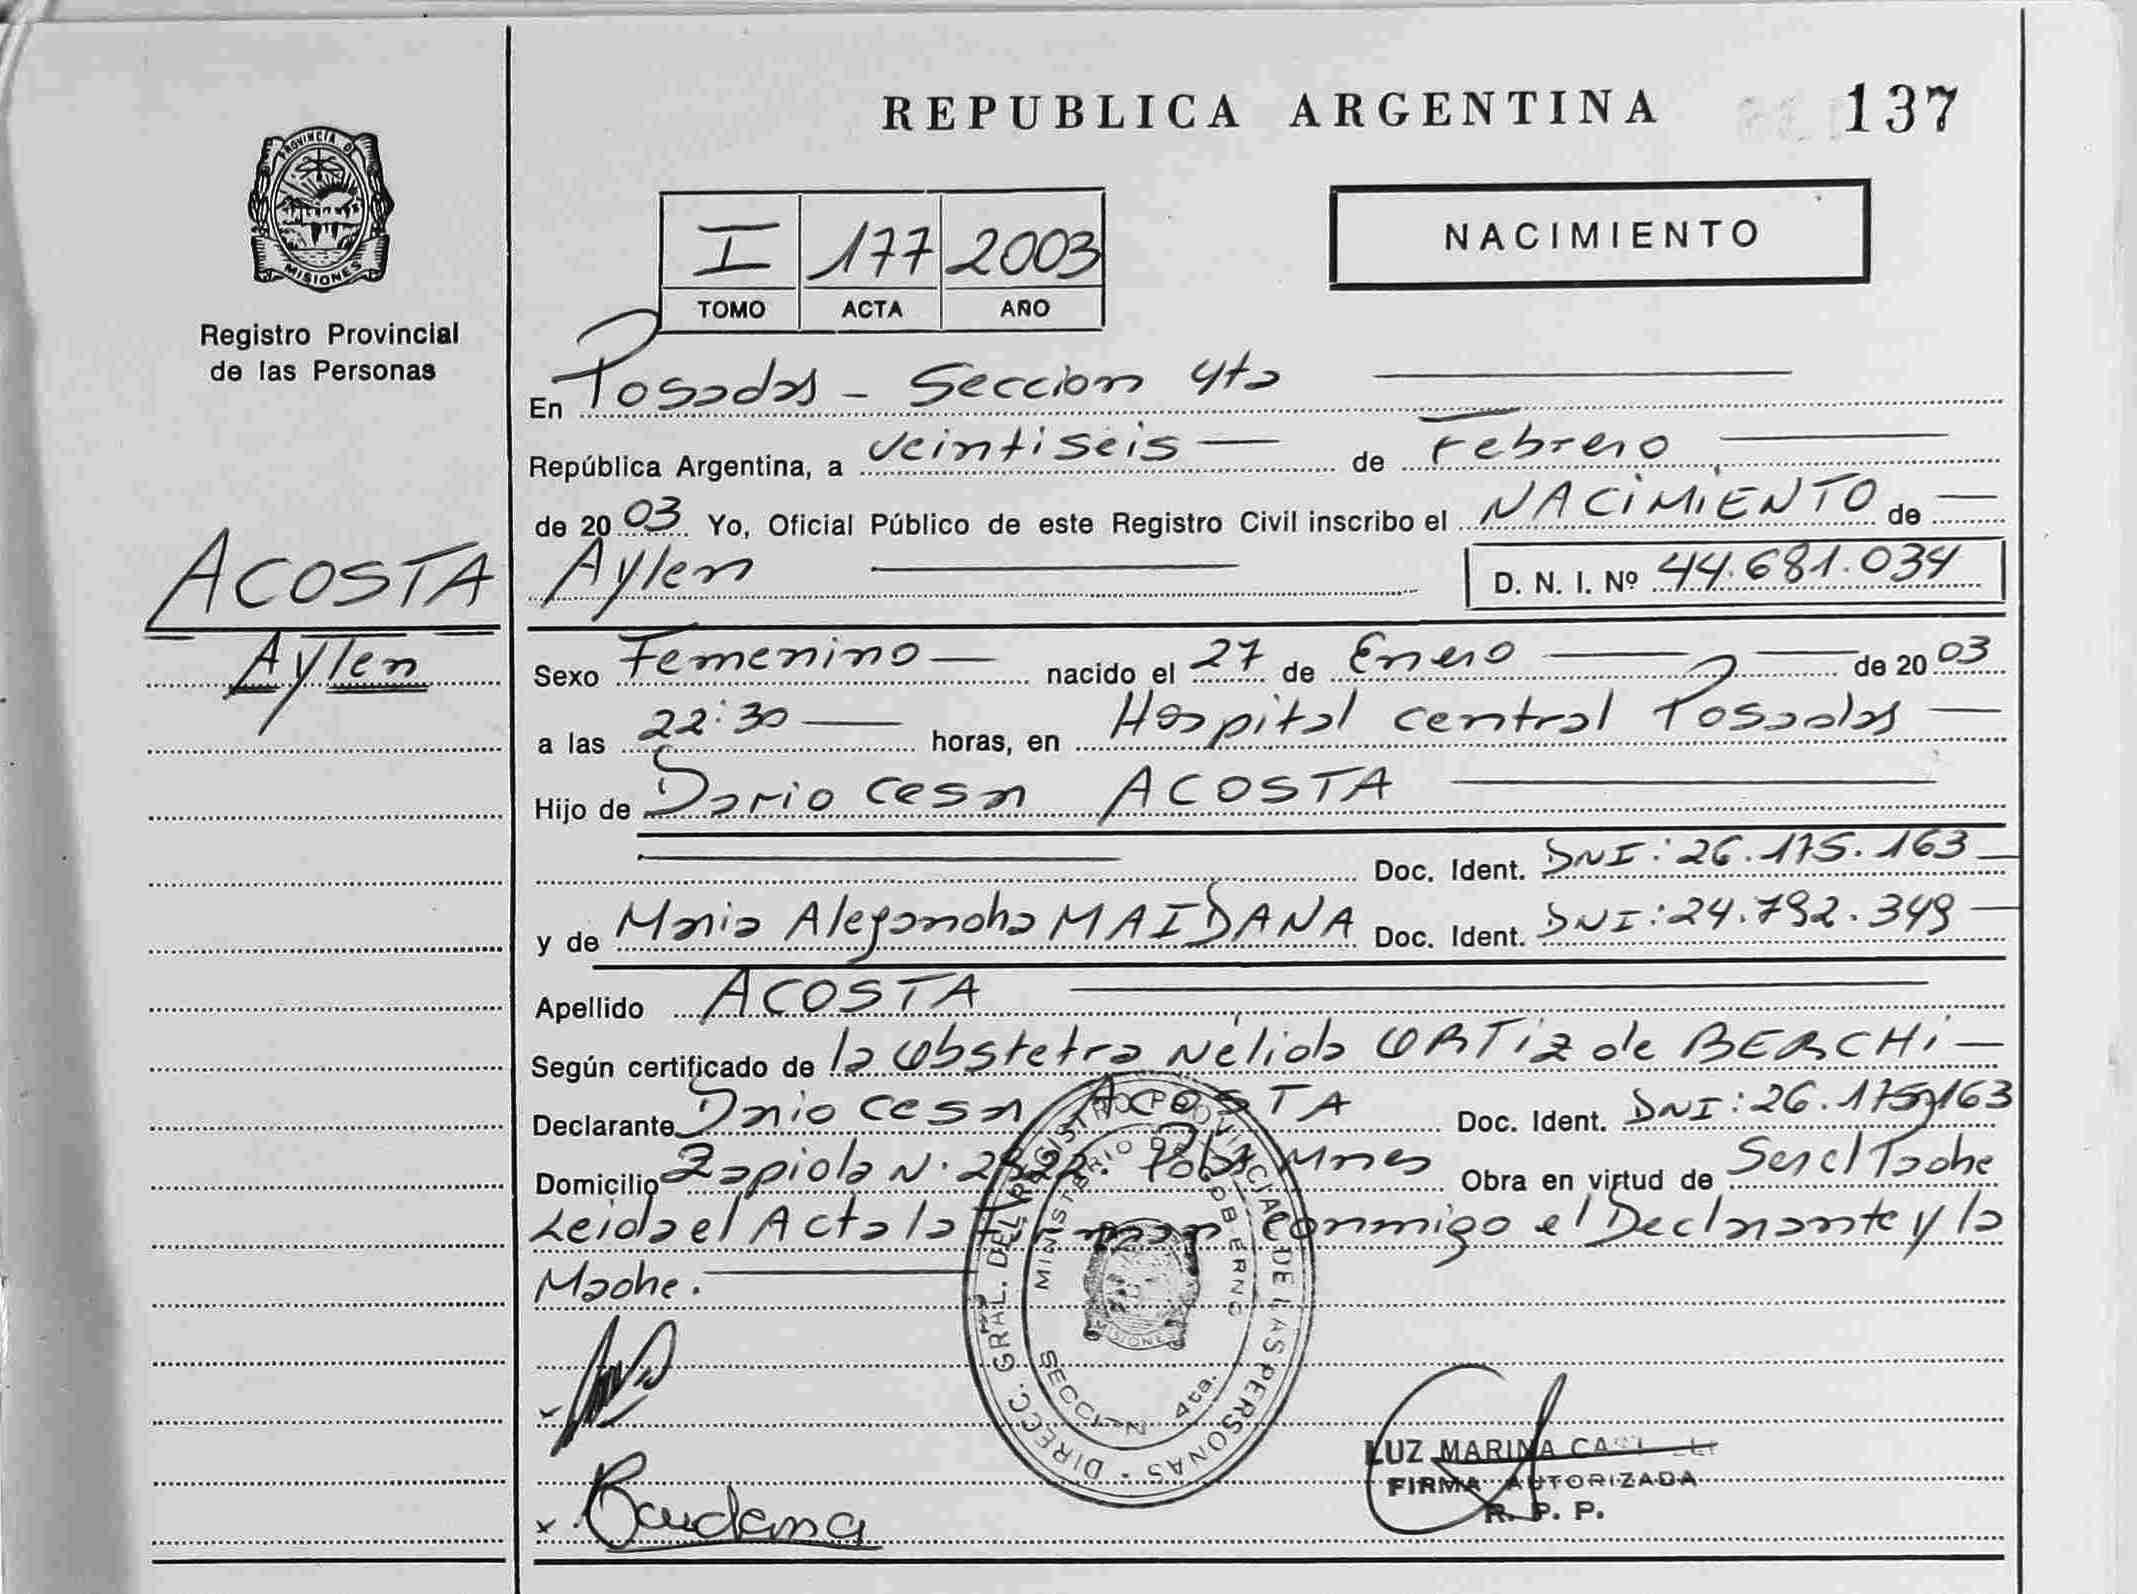 REPUBLICA ARGENTINA 137
PROVINCIA DE
MISIONES
Registro Provincial
de las Personas
NACIMIENTO
I 177 2003
TOMO ACTA AÑO
En Posadas - Seccion 4ta
República Argentina, a veintiseis de Febrero
de 2003 Yo, Oficial Público de este Registro Civil inscribo el NACIMIENTO de
ACOSTA
Aylen
Aylen D. N. I. Nº 44.681.034
Sexo Femenino nacido el 27 de Enero de 2003
a las 22:30 horas, en Hospital Central Posadas
Hijo de Dario Cesar ACOSTA
Doc. Ident. DNI: 26.175.163
y de Maria Alejandra MAIDANA Doc. Ident. DNI: 24.792.349
Apellido ACOSTA
Según certificado de la Obstetra Nélida ORTiz de BERCHi
Declarante Dario Cesar ACOSTA Doc. Ident. DNI: 26.175.163
Domicilio Zapiola N. Obra en virtud de Ser el Padre
Leida el Acta la Firman Conmigo el Declarante y la
Madre.
DIRECC. GRAL. DEL REGISTRO PROVINCIAL DE LAS PERSONAS
MINISTERIO DE GOBIERNO
MISIONES
SECCION 4ta.
LUZ MARINA
FIRMA AUTORIZADA
R. P. P.